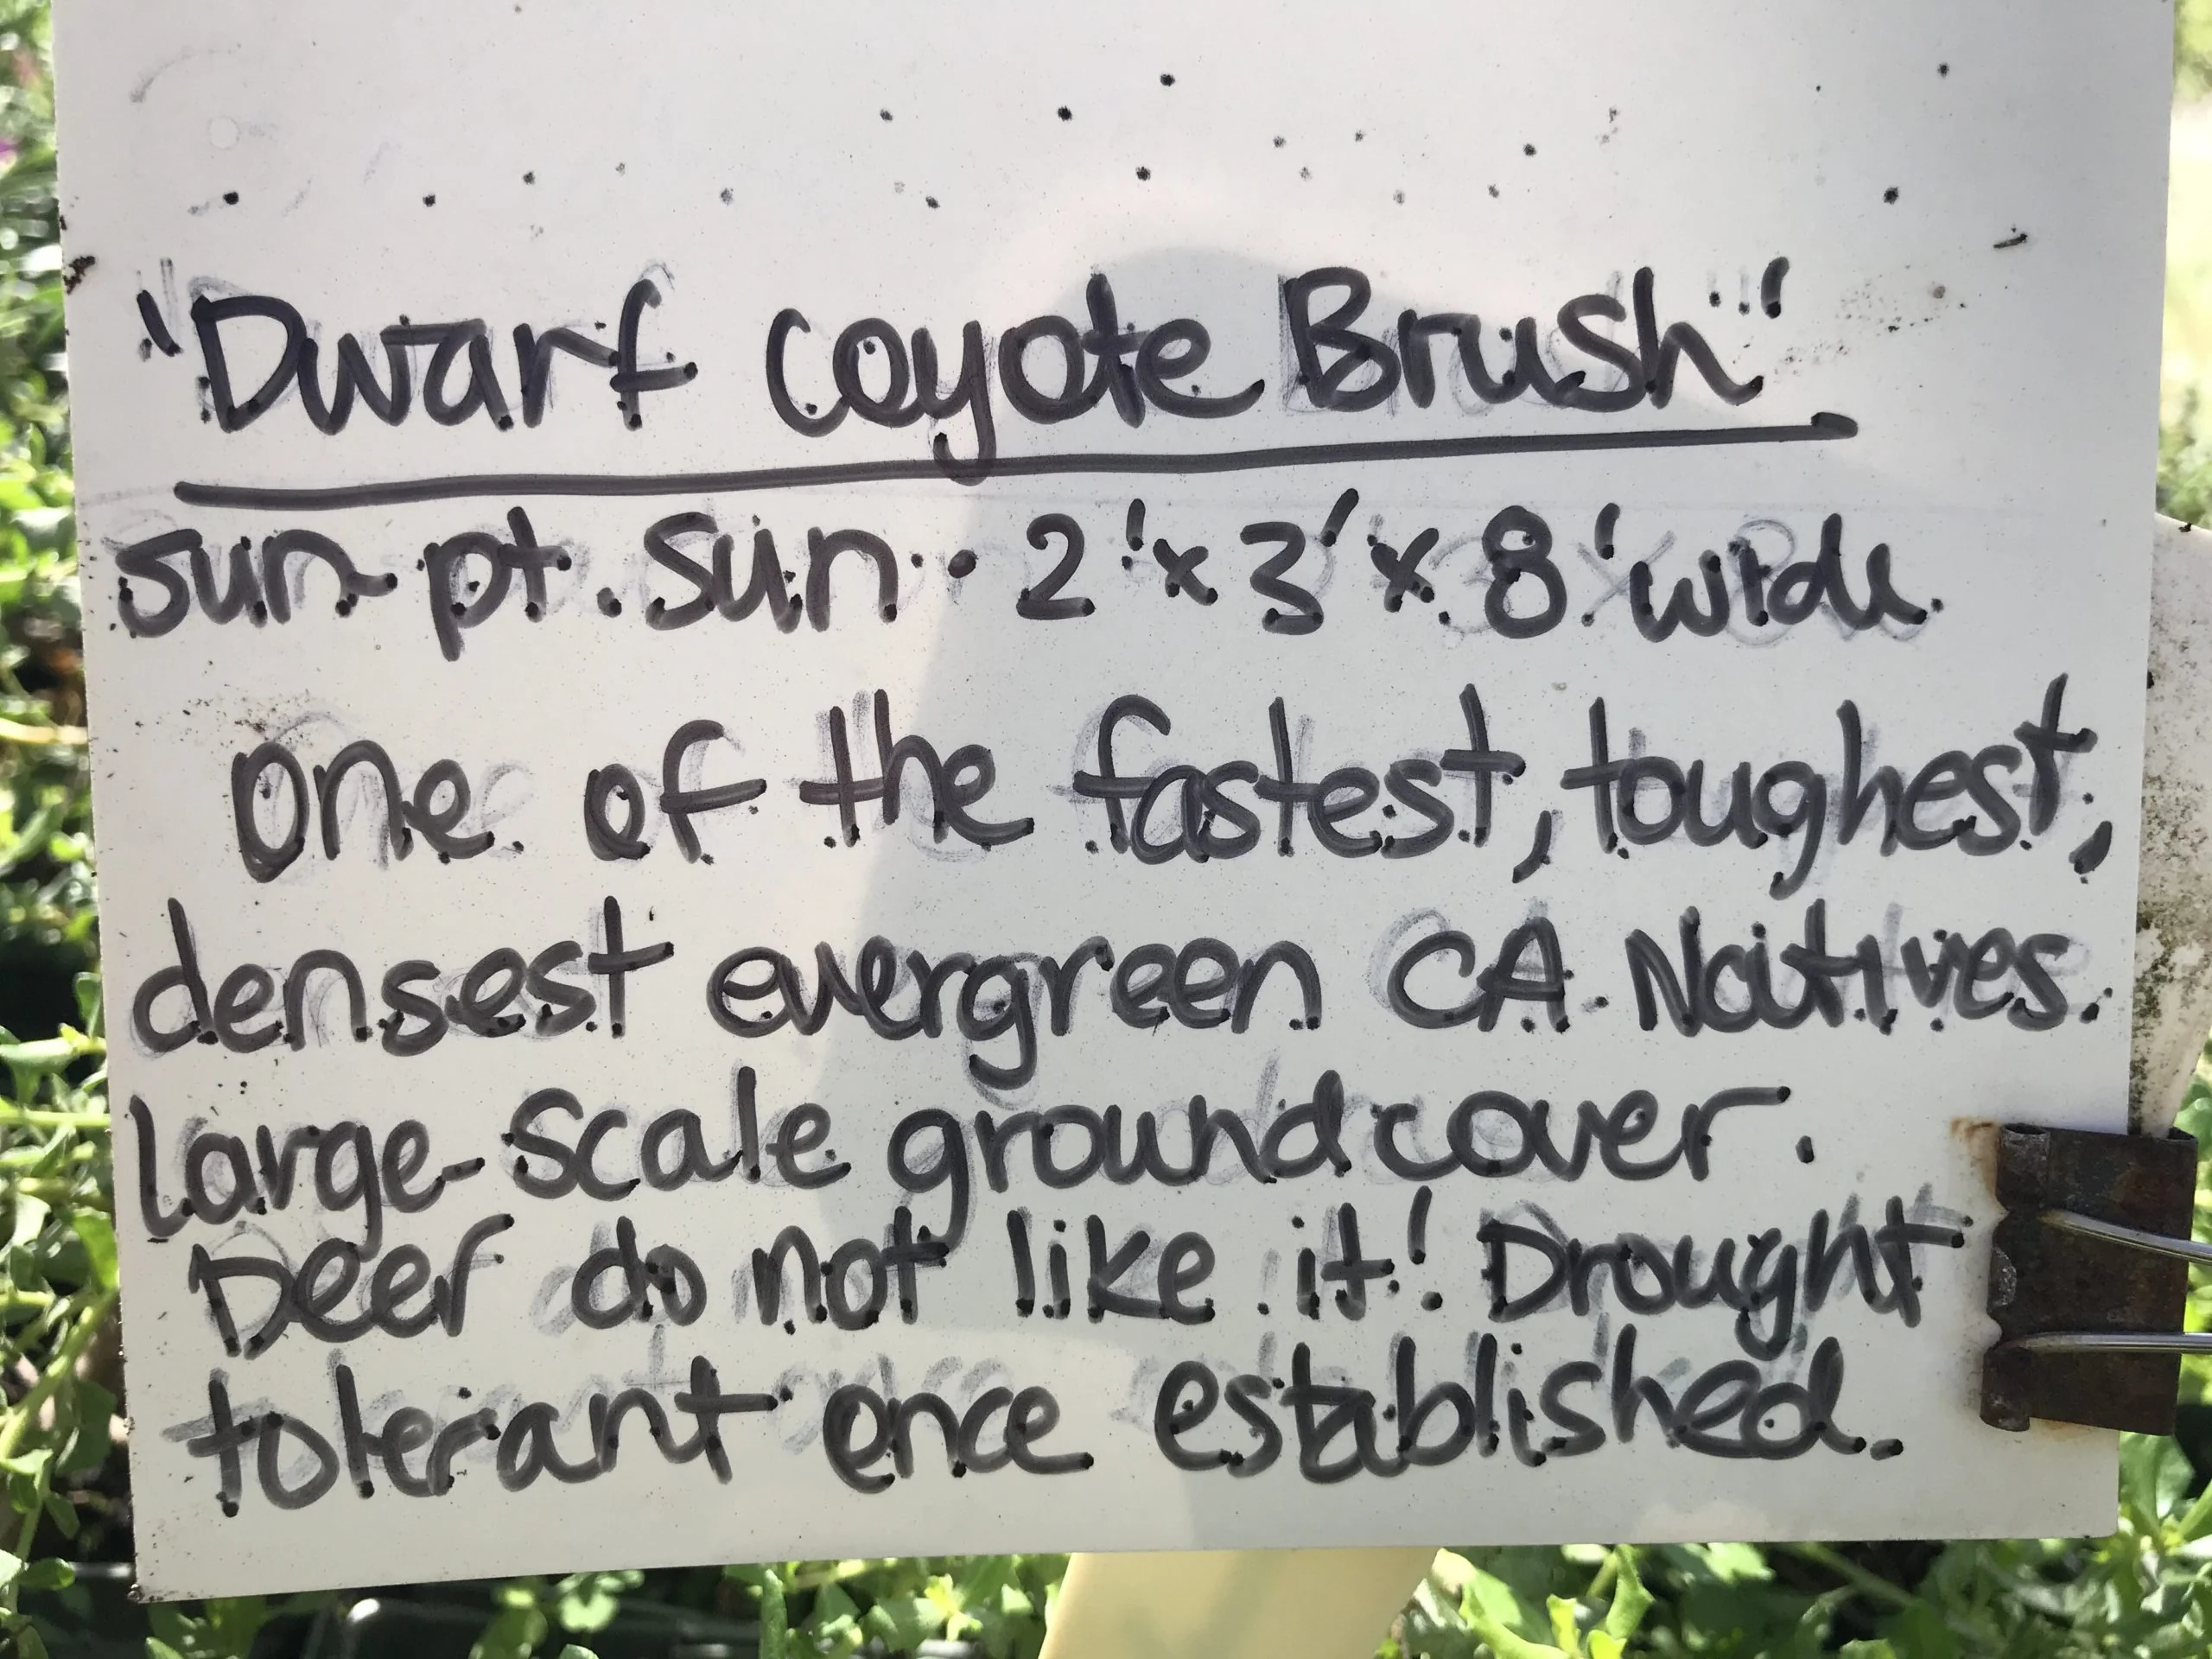 "Dwarf Coyote Brush"
Sun-pt. Sun • 2'x3'x 8' wide
One of the fastest, toughest,
densest evergreen CA. Natives.
Large-Scale groundcover.
Deer do not like it! Drought
tolerant once established.